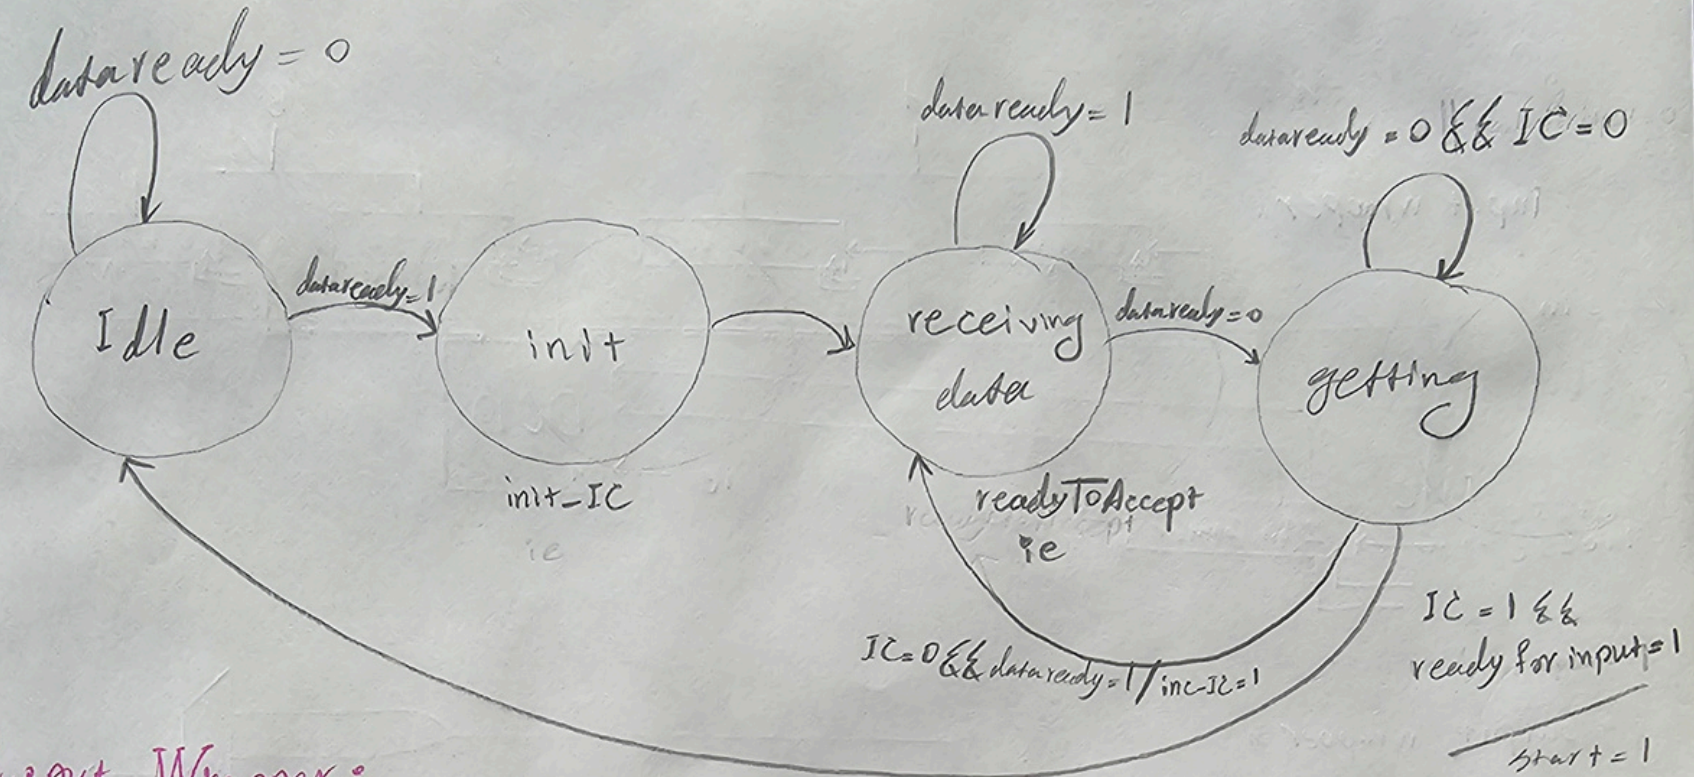 dataready = 0
dataready = 1
dataready = 0 && IC = 0
dataready = 1
dataready = 0
Idle
init
receiving
data
getting
init_IC
ie
readyToAccept
ie
IC = 1 &&
ready for input = 1
IC = 0 && dataready = 1 / inc-IC = 1
start = 1